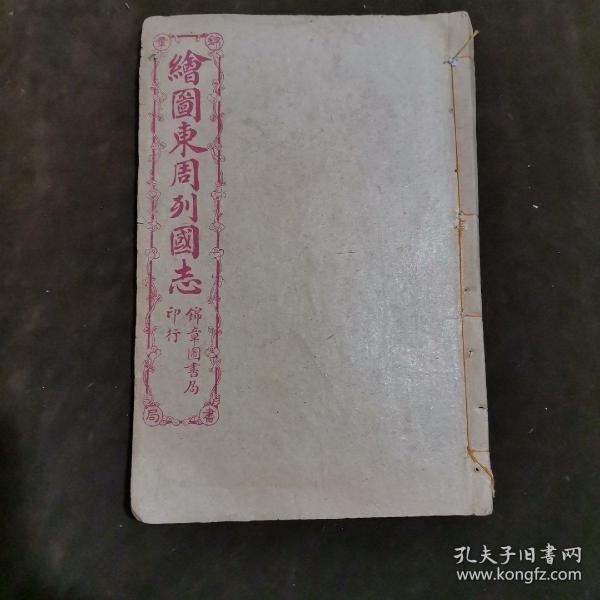 錦章
繪圖東周列國志
錦章圖書局
印行
書局
孔夫子旧书网
www.kongfz.com